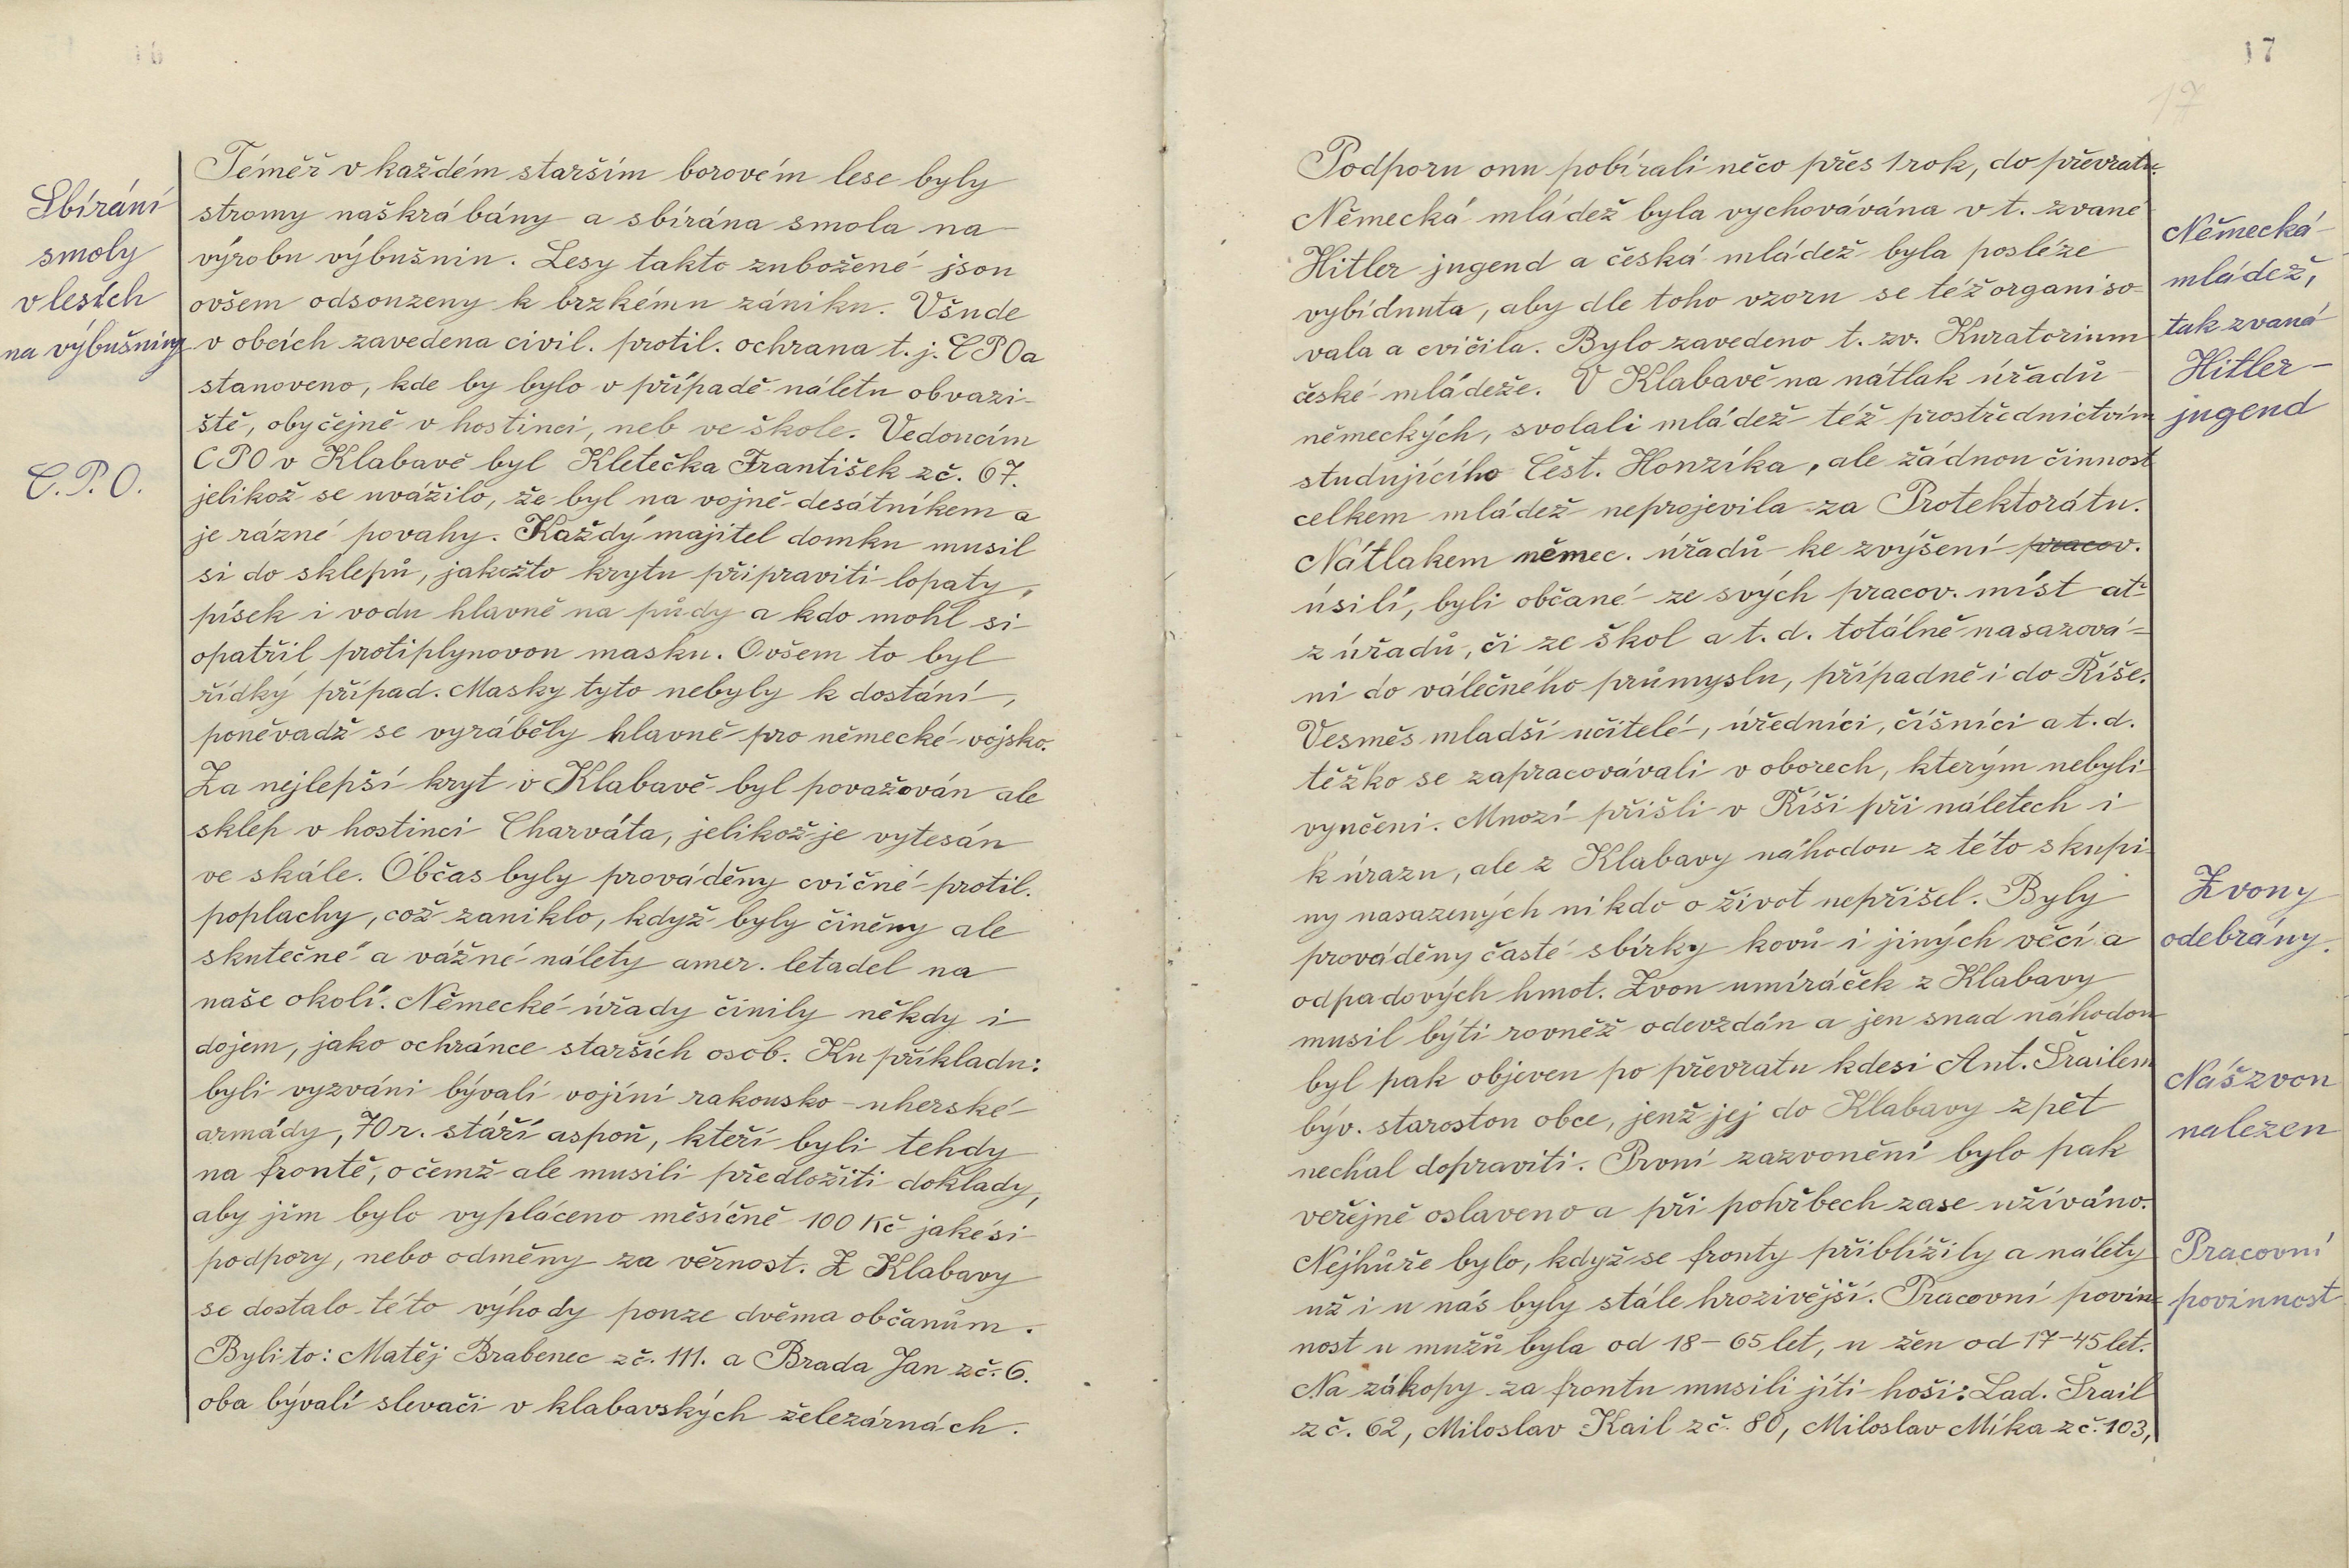 16
Sbírání
smoly
v lesích
na výbušniny
C.P.O.
Téměř v každém starším borovém lese byly
stromy naškrábány a sbírána smola na
výrobu výbušnin. Lesy takto zubožené jsou
ovšem odsouzeny k brzkému zániku. Všude
v obcích zavedena civil. protil. ochrana t. j. CPO a
stanoveno, kde by bylo v případě náletu obvazi-
ště, obyčejně v hostinci, neb ve škole. Vedoucím
CPO v Klabavě byl Kletečka František z č. 67.
jelikož se uvážilo, že byl na vojně desátníkem a
je rázné povahy. Každý majitel domku musil
si do sklepů, jakožto krytu připraviti lopaty,
písek i vodu hlavně na půdy a kdo mohl si
opatřil protiplynovou masku. Ovšem to byl
řídký případ. Masky tyto nebyly k dostání,
poněvadž se vyráběly hlavně pro německé vojsko.
Za nejlepší kryt v Klabavě byl považován ale
sklep v hostinci Charváta, jelikož je vytesán
ve skále. Občas byly prováděny cvičné protil.
poplachy, což zaniklo, když byly činěny ale
skutečné a vážné nálety amer. letadel na
naše okolí. Německé úřady činily někdy i
dojem, jako ochránce starších osob. Ku příkladu:
byli vyzváni bývalí vojíni rakousko-uherské
armády, 70 r. stáří aspoň, kteří byli tehdy
na frontě, o čemž ale musili předložiti doklady,
aby jim bylo vypláceno měsíčně 100 Kč jakési
podpory, nebo odměny za věrnost. Z Klabavy
se dostalo této výhody pouze dvěma občanům.
Byli to: Matěj Brabenec z č. 111. a Brada Jan z č. 6.
oba bývalí slevači v klabavských železárnách.
17
17
Podporu onu pobírali něco přes 1 rok, do převratu.
Německá mládež byla vychovávána v t. zvané
Hitler jugend a česká mládež byla posléze
vybídnuta, aby dle toho vzoru se též organiso-
vala a cvičila. Bylo zavedeno t. zv. Kuratorium
české mládeže. V Klabavě na nátlak úřadů
německých, svolali mládež též prostřednictvím
studujícího Čest. Honzíka, ale žádnou činnost
celkem mládež neprojevila za Protektorátu.
Nátlakem němec. úřadů ke zvýšení pracov.
úsilí, byli občané ze svých pracov. míst ať
z úřadů, či ze škol a t. d. totálně nasazová-
ni do válečného průmyslu, případně i do Říše.
Vesměs mladší učitelé, úředníci, číšníci a t. d.
těžko se zapracovávali v oborech, kterým nebyli
vyučeni. Mnozí přišli v Říši při náletech i
k úrazu, ale z Klabavy náhodou z této skupi-
ny nasazených nikdo o život nepřišel. Byly
prováděny časté sbírky kovů i jiných věcí a
odpadových hmot. Zvon umíráček z Klabavy
musil býti rovněž odevzdán a jen snad náhodou
byl pak objeven po převratu kdesi Ant. Šrailem
býv. starostou obce, jenž jej do Klabavy zpět
nechal dopraviti. První zazvonění bylo pak
veřejně oslaveno a při pohřbech zase užíváno.
Nejhůře bylo, když se fronty přiblížily a nálety
už i u nás byly stále hrozivější. Pracovní povin-
nost u mužů byla od 18-65 let, u žen od 17-45 let.
Na zákopy za frontu musili jíti hoši: Lad. Šrail
z č. 62, Miloslav Kail z č. 80, Miloslav Míka z č. 103,
Německá
mládež,
tak zvaná
Hitler-
jugend
Zvony
odebrány.
Náš zvon
nalezen
Pracovní
povinnost